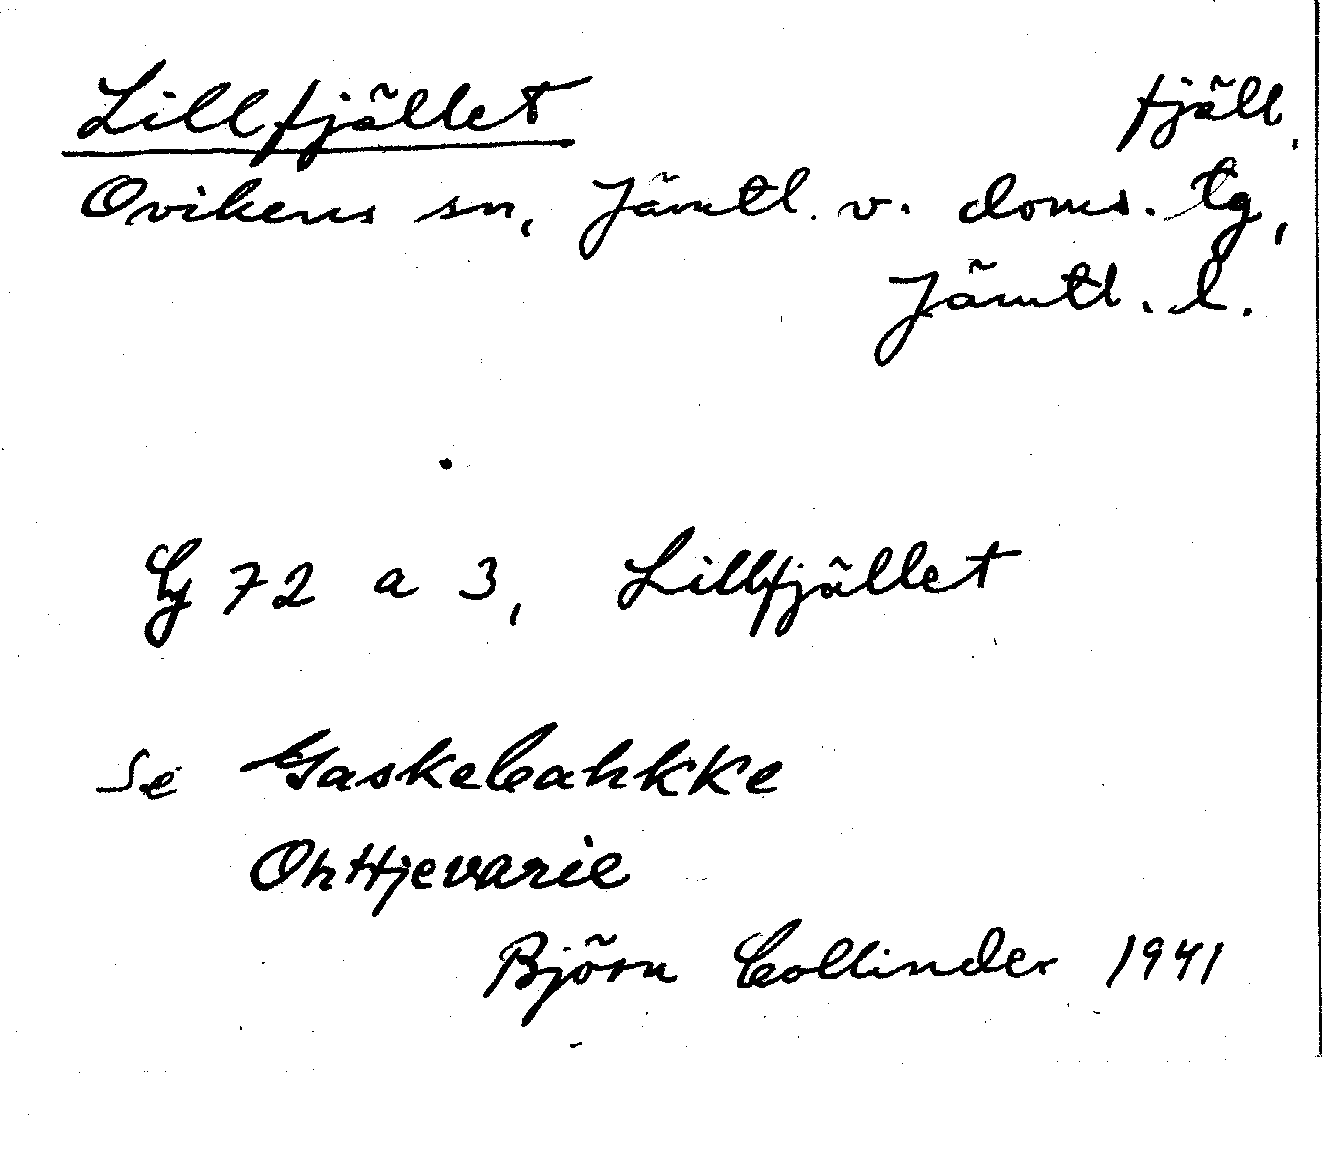 Lillfjället fjäll.
Ovikens sn, Jämtl. v. doms. tg,
Jämtl. l.
Lj 72 a 3, Lillfjället
Se Gaskebahkke
Ohttjevarie
Björn Collinder 1941